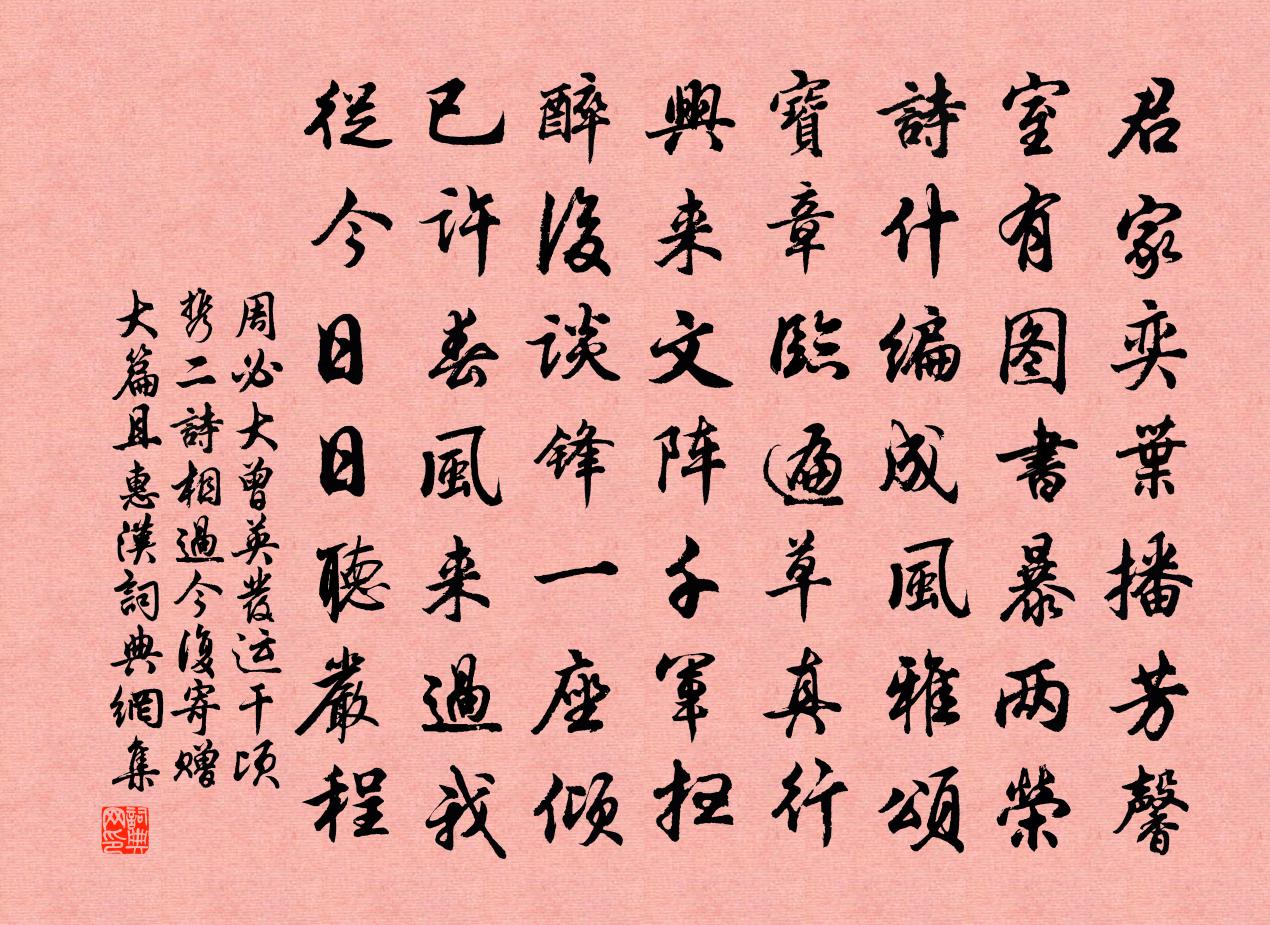 君家奕葉播芳馨
室有图書暴两榮
詩什编成風雅頌
寶章臨遍草真行
興来文阵千軍扫
醉後谈锋一座倾
已许春風来過我
從今日日聽嚴程
周必大曾英發运干頃
携二詩相過今復寄赠
大篇且惠漢詞典網集
詞典网印